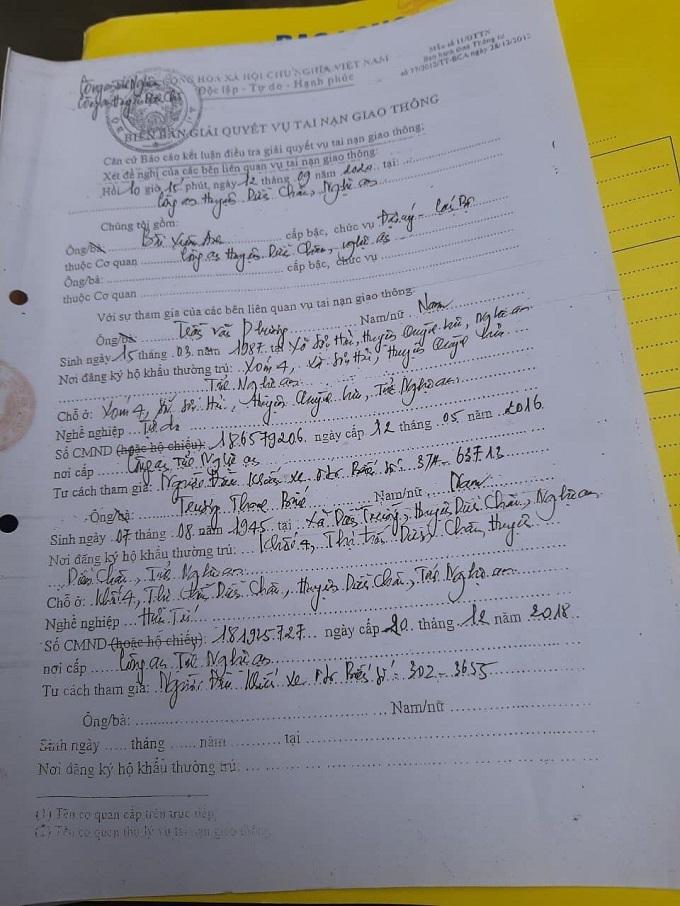 Mẫu số 11/GTTN
Ban hành theo Thông tư
số 77/2012/TT-BCA ngày 28/12/2012
CỘNG HÒA XÃ HỘI CHỦ NGHĨA VIỆT NAM
Độc lập - Tự do - Hạnh phúc
BIÊN BẢN GIẢI QUYẾT VỤ TAI NẠN GIAO THÔNG
Căn cứ Báo cáo kết luận điều tra giải quyết vụ tai nạn giao thông;
Xét đề nghị của các bên liên quan vụ tai nạn giao thông:
Hồi 10 giờ 15 phút, ngày 12 tháng 09 năm 2020 tại:
Công an huyện Diễn Châu, Nghệ an
Chúng tôi gồm:
Ông/bà: Xuân cấp bậc, chức vụ Đại úy - Cán Bộ
thuộc Cơ quan Công an huyện Diễn Châu, nghệ an
Ông/bà: cấp bậc, chức vụ
thuộc Cơ quan
Với sự tham gia của các bên liên quan vụ tai nạn giao thông:
Ông/bà Văn Phương Nam/nữ Nam
Sinh ngày 15 tháng 03 năm 1987 tại xã Sơn Hải, huyện Quỳnh lưu, Nghệ an
Nơi đăng ký hộ khẩu thường trú: Xóm 4, xã Sơn Hải, huyện Quỳnh lưu
Tỉnh Nghệ an
Chỗ ở: Xóm 4, xã Sơn Hải, huyện Quỳnh lưu, Tỉnh Nghệ an
Nghề nghiệp Tự do
Số CMND (hoặc hộ chiếu): 186579206 ngày cấp 12 tháng 05 năm 2016
nơi cấp Công an Tỉnh Nghệ an
Tư cách tham gia: Người Điều khiển xe ôtô Biển số: 37A - 63713
Ông/bà: Trương Nam/nữ Nam
Sinh ngày 07 tháng 08 năm 1945 tại xã Diễn Trường, huyện Diễn Châu, Nghệ an
Nơi đăng ký hộ khẩu thường trú: Khối 4, Thị trấn Diễn Châu, huyện
Diễn Châu, Tỉnh Nghệ an
Chỗ ở: Khối 4, Thị trấn Diễn Châu, huyện Diễn Châu, Tỉnh Nghệ an
Nghề nghiệp Hưu Trí
Số CMND (hoặc hộ chiếu): 181925727 ngày cấp 20 tháng 12 năm 2018
nơi cấp Công an Tỉnh Nghệ an
Tư cách tham gia: Người Điều khiển xe Biển số: 302 - 3655
Ông/bà: Nam/nữ
Sinh ngày tháng năm tại
Nơi đăng ký hộ khẩu thường trú:
(1) Tên cơ quan cấp trên trực tiếp;
(2) Tên cơ quan thụ lý vụ tai nạn giao thông.